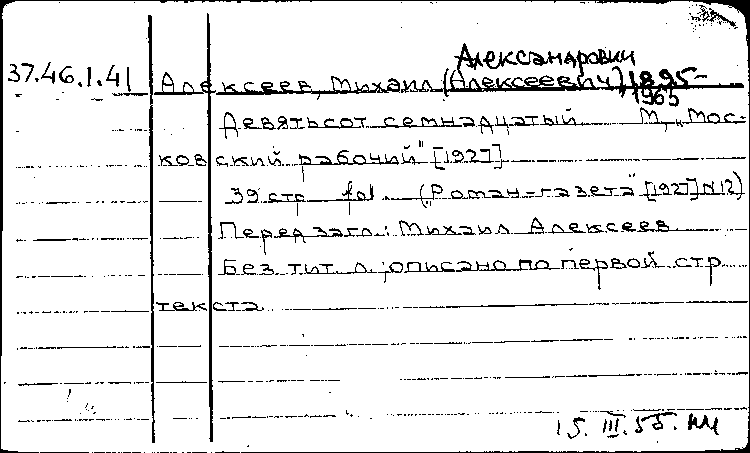 Александрович
37.46.1.41 Алексеев, Михаил (Алексеевич) 1895-
1965
Девятьсот семнадцатый М., „Мос-
ковский рабочий" [1927]
39 стр fol. („Роман-газета" [1927] N12)
Перед загл.: Михаил Алексеев
Без тит. л.; описано по первой стр
текста
15.III.55.